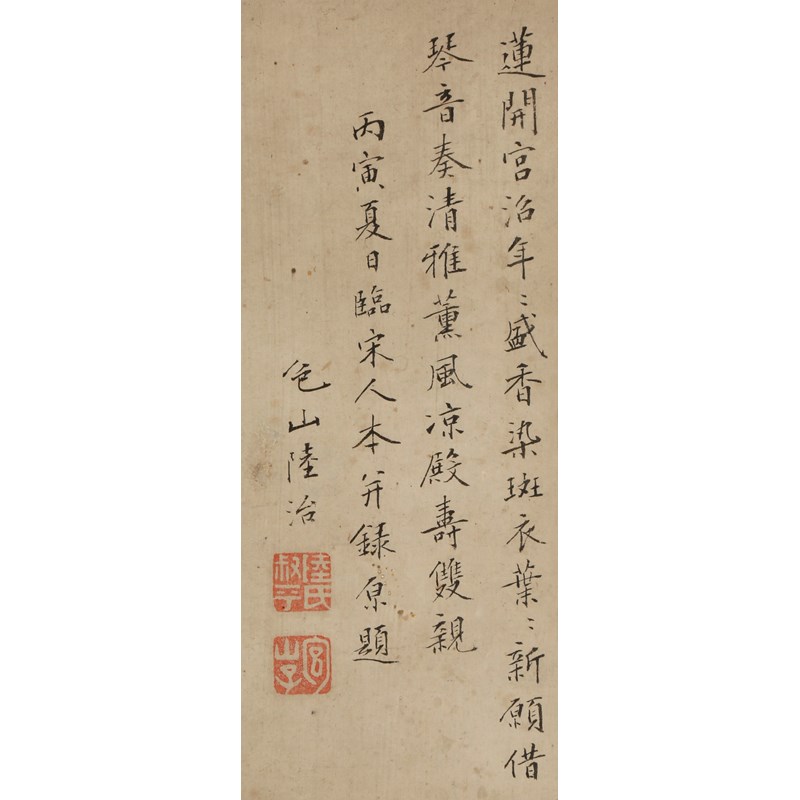 蓮開宮沼年〻盛香染斑衣葉〻新願借
琴音奏清雅薰風凉殿壽雙親
丙寅夏日臨宋人本并錄原題
包山陸治
陸氏叔平
包山子